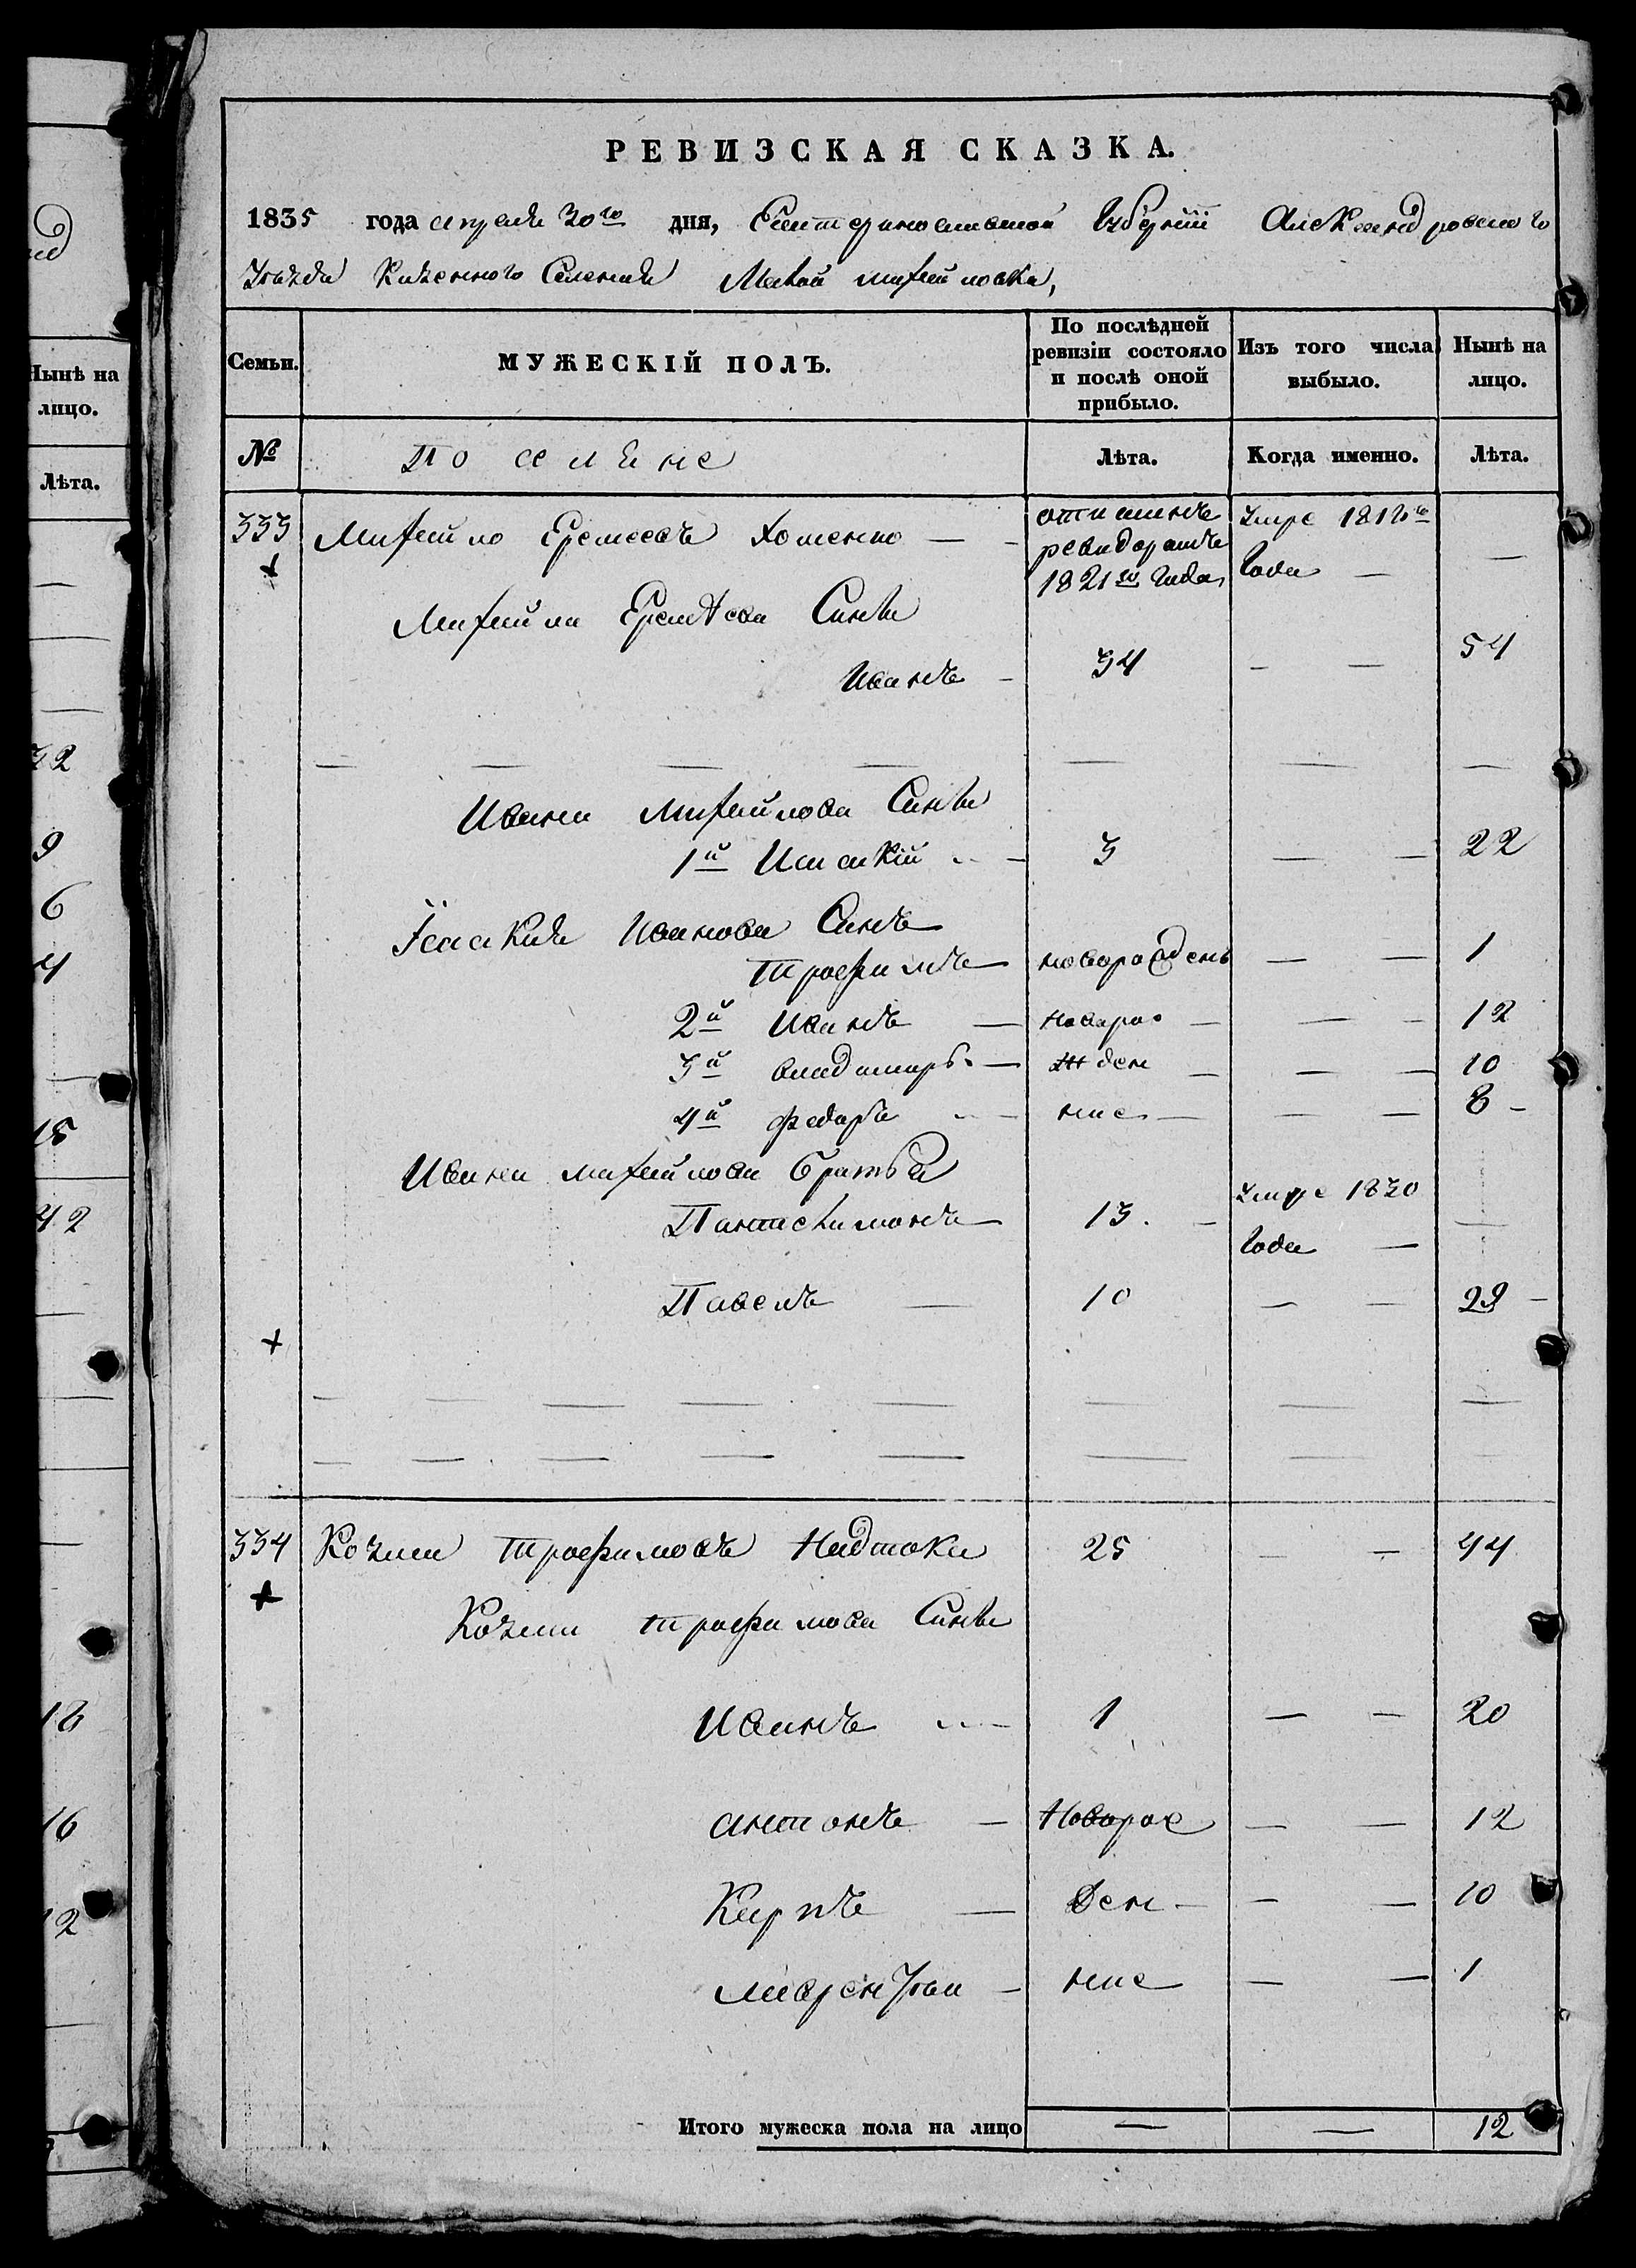 РЕВИЗСКАЯ СКАЗКА.
1835 года апреля 30го дня, Екатеринославской Губерніи Александровского
Уѣзда Казенного Селения Малой михайловки,
Семьи. МУЖЕСКІЙ ПОЛЪ. По послѣдней ревизіи состояло и послѣ оной прибыло. Изъ того числа выбыло. Нынѣ на лицо.
№ Поселяне Лѣта. Когда именно. Лѣта.
333 Михайло Еремеевъ Хоменко — 1821го Года умре 1818го Года —
Михайла Еремѣева Синъи
Иванъ — 34 — — 54
Ивана Михайлова Синъи
1й Исаакій — 3 — — 22
Ісаакия Иванова Синъ
Трофимъ — новорожденъ — — 1
2й Иванъ — Новоро — — 12
3й владимиръ — жден — — 10
4й федоръ — ние — — — 8 —
Ивана михайлова братья
Пантелимонъ — 13. — умре 1830 Года — —
Павелъ — 10 — — 29 —
334 Козма Трофимовъ Надтока 25 — — 44
Козми трофимова Синъи
Иванъ — 1 — — 20
антонъ — Новорож — — 12
Карпъ — Ден — — — 10
лаврентѣи — ние — — 1
Итого мужеска пола на лицо — — 12
Нынѣ на
лицо.
Лѣта.
32
9
6
4
15
42
18
16
12